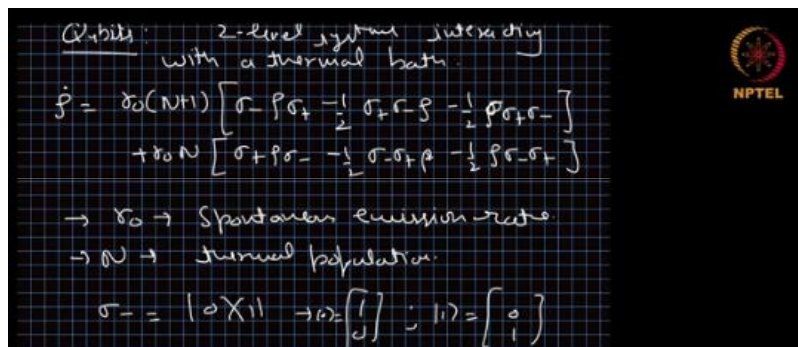 Qubits: 2-level systems interacting
with a thermal bath.
NPTEL
ρ̇ = γ₀(N+1) [σ₋ρσ₊ - 1/2 σ₊σ₋ρ - 1/2 ρσ₊σ₋]
+ γ₀N [σ₊ρσ₋ - 1/2 σ₋σ₊ρ - 1/2 ρσ₋σ₊]
→ γ₀ → Spontaneous emission rate.
→ N → thermal population.
σ₋ = |0⟩⟨1| → |0⟩ = [1 0] ; |1⟩ = [0 1]